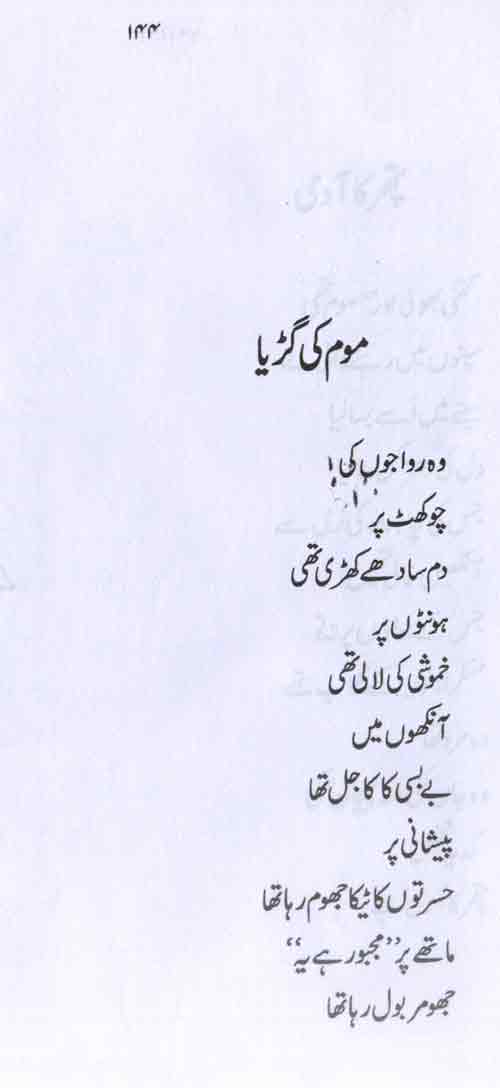 ۱۴۴
موم کی گڑیا
وہ رواجوں کی
چوکھٹ پر
دم سادھے کھڑی تھی
ہونٹوں پر
خموشی کی لالی تھی
آنکھوں میں
بے بسی کا کاجل تھا
پیشانی پر
حسرتوں کا ٹیکا جھوم رہا تھا
ماتھے پر ”مجبور ہے یہ“
جھومر بول رہا تھا